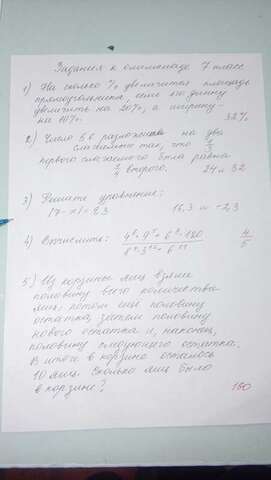 Задания к олимпиаде 7 класс
1) На сколько % увеличится площадь
прямоугольника, если его длину
увеличить на 20%, а ширину -
на 10%. 32%
2) Число 56 разложить на два
слагаемых так, что
первого слагаемого была равна
второго. 24 и 32
3) Решите уравнение:
16,3 и -2,3
4) Вычислить: 4/5
5) Из корзины яиц взяли
половину всего количества
яиц, потом ещё половину
остатка, затем половину
нового остатка и, наконец,
половину следующего остатка.
В итоге в корзине осталось
10 яиц. Сколько яиц было
в корзине? 160